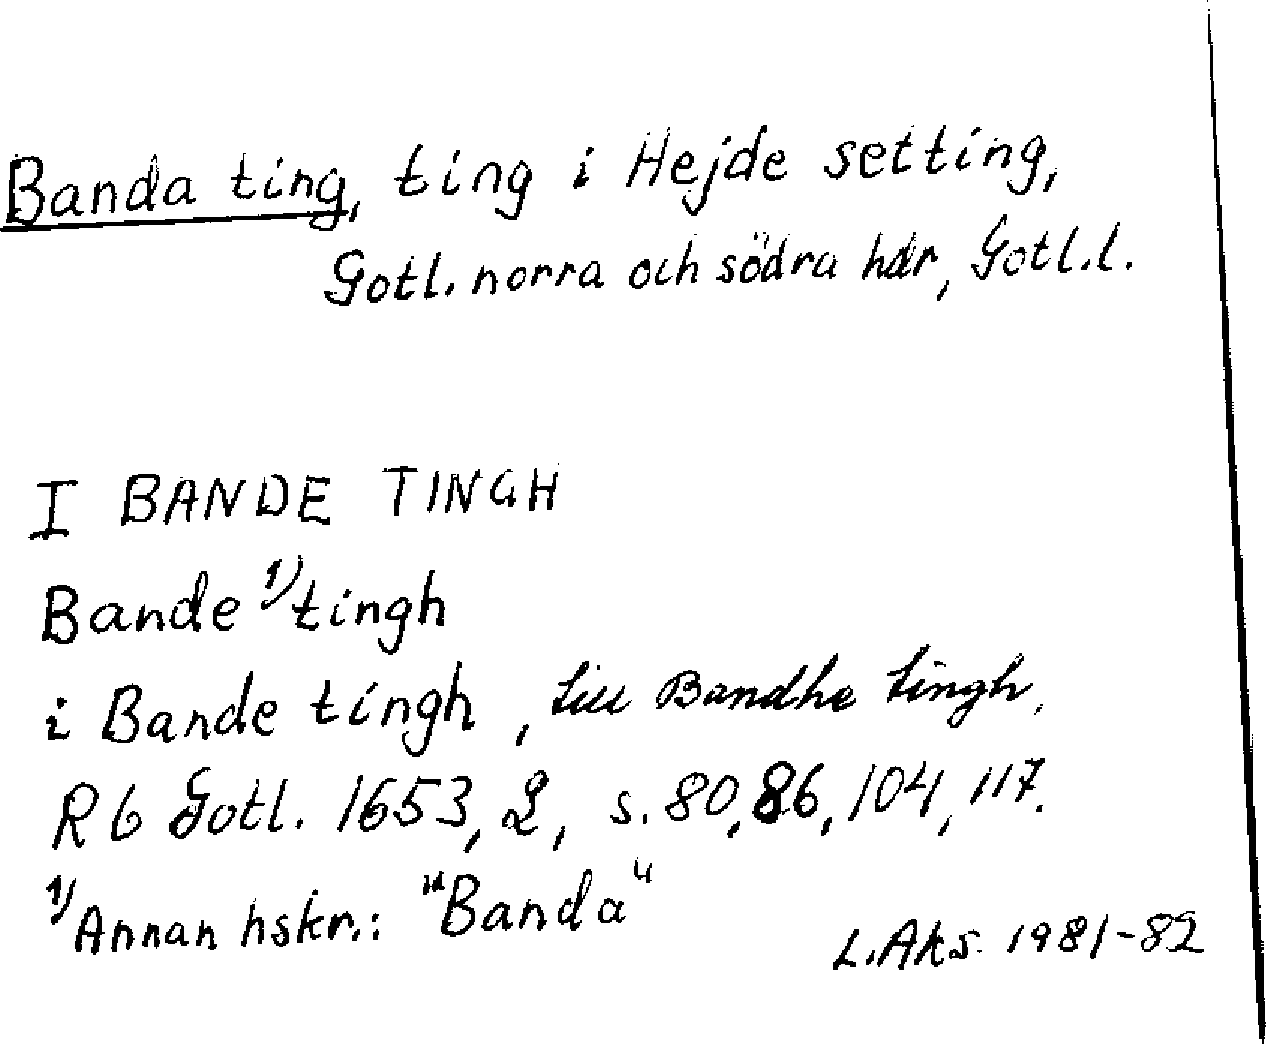 Banda ting, ting i Hejde setting,
Gotl. norra och södra hdr, Gotl.l.
I BANDE TINGH
Bande ¹⁾tingh
i Bande tingh, till Bandhe tingh,
R6 Gotl. 1653, 2, s. 80, 86, 104, 117.
¹⁾Annan hskr.: "Banda"
L.Aks. 1981-82